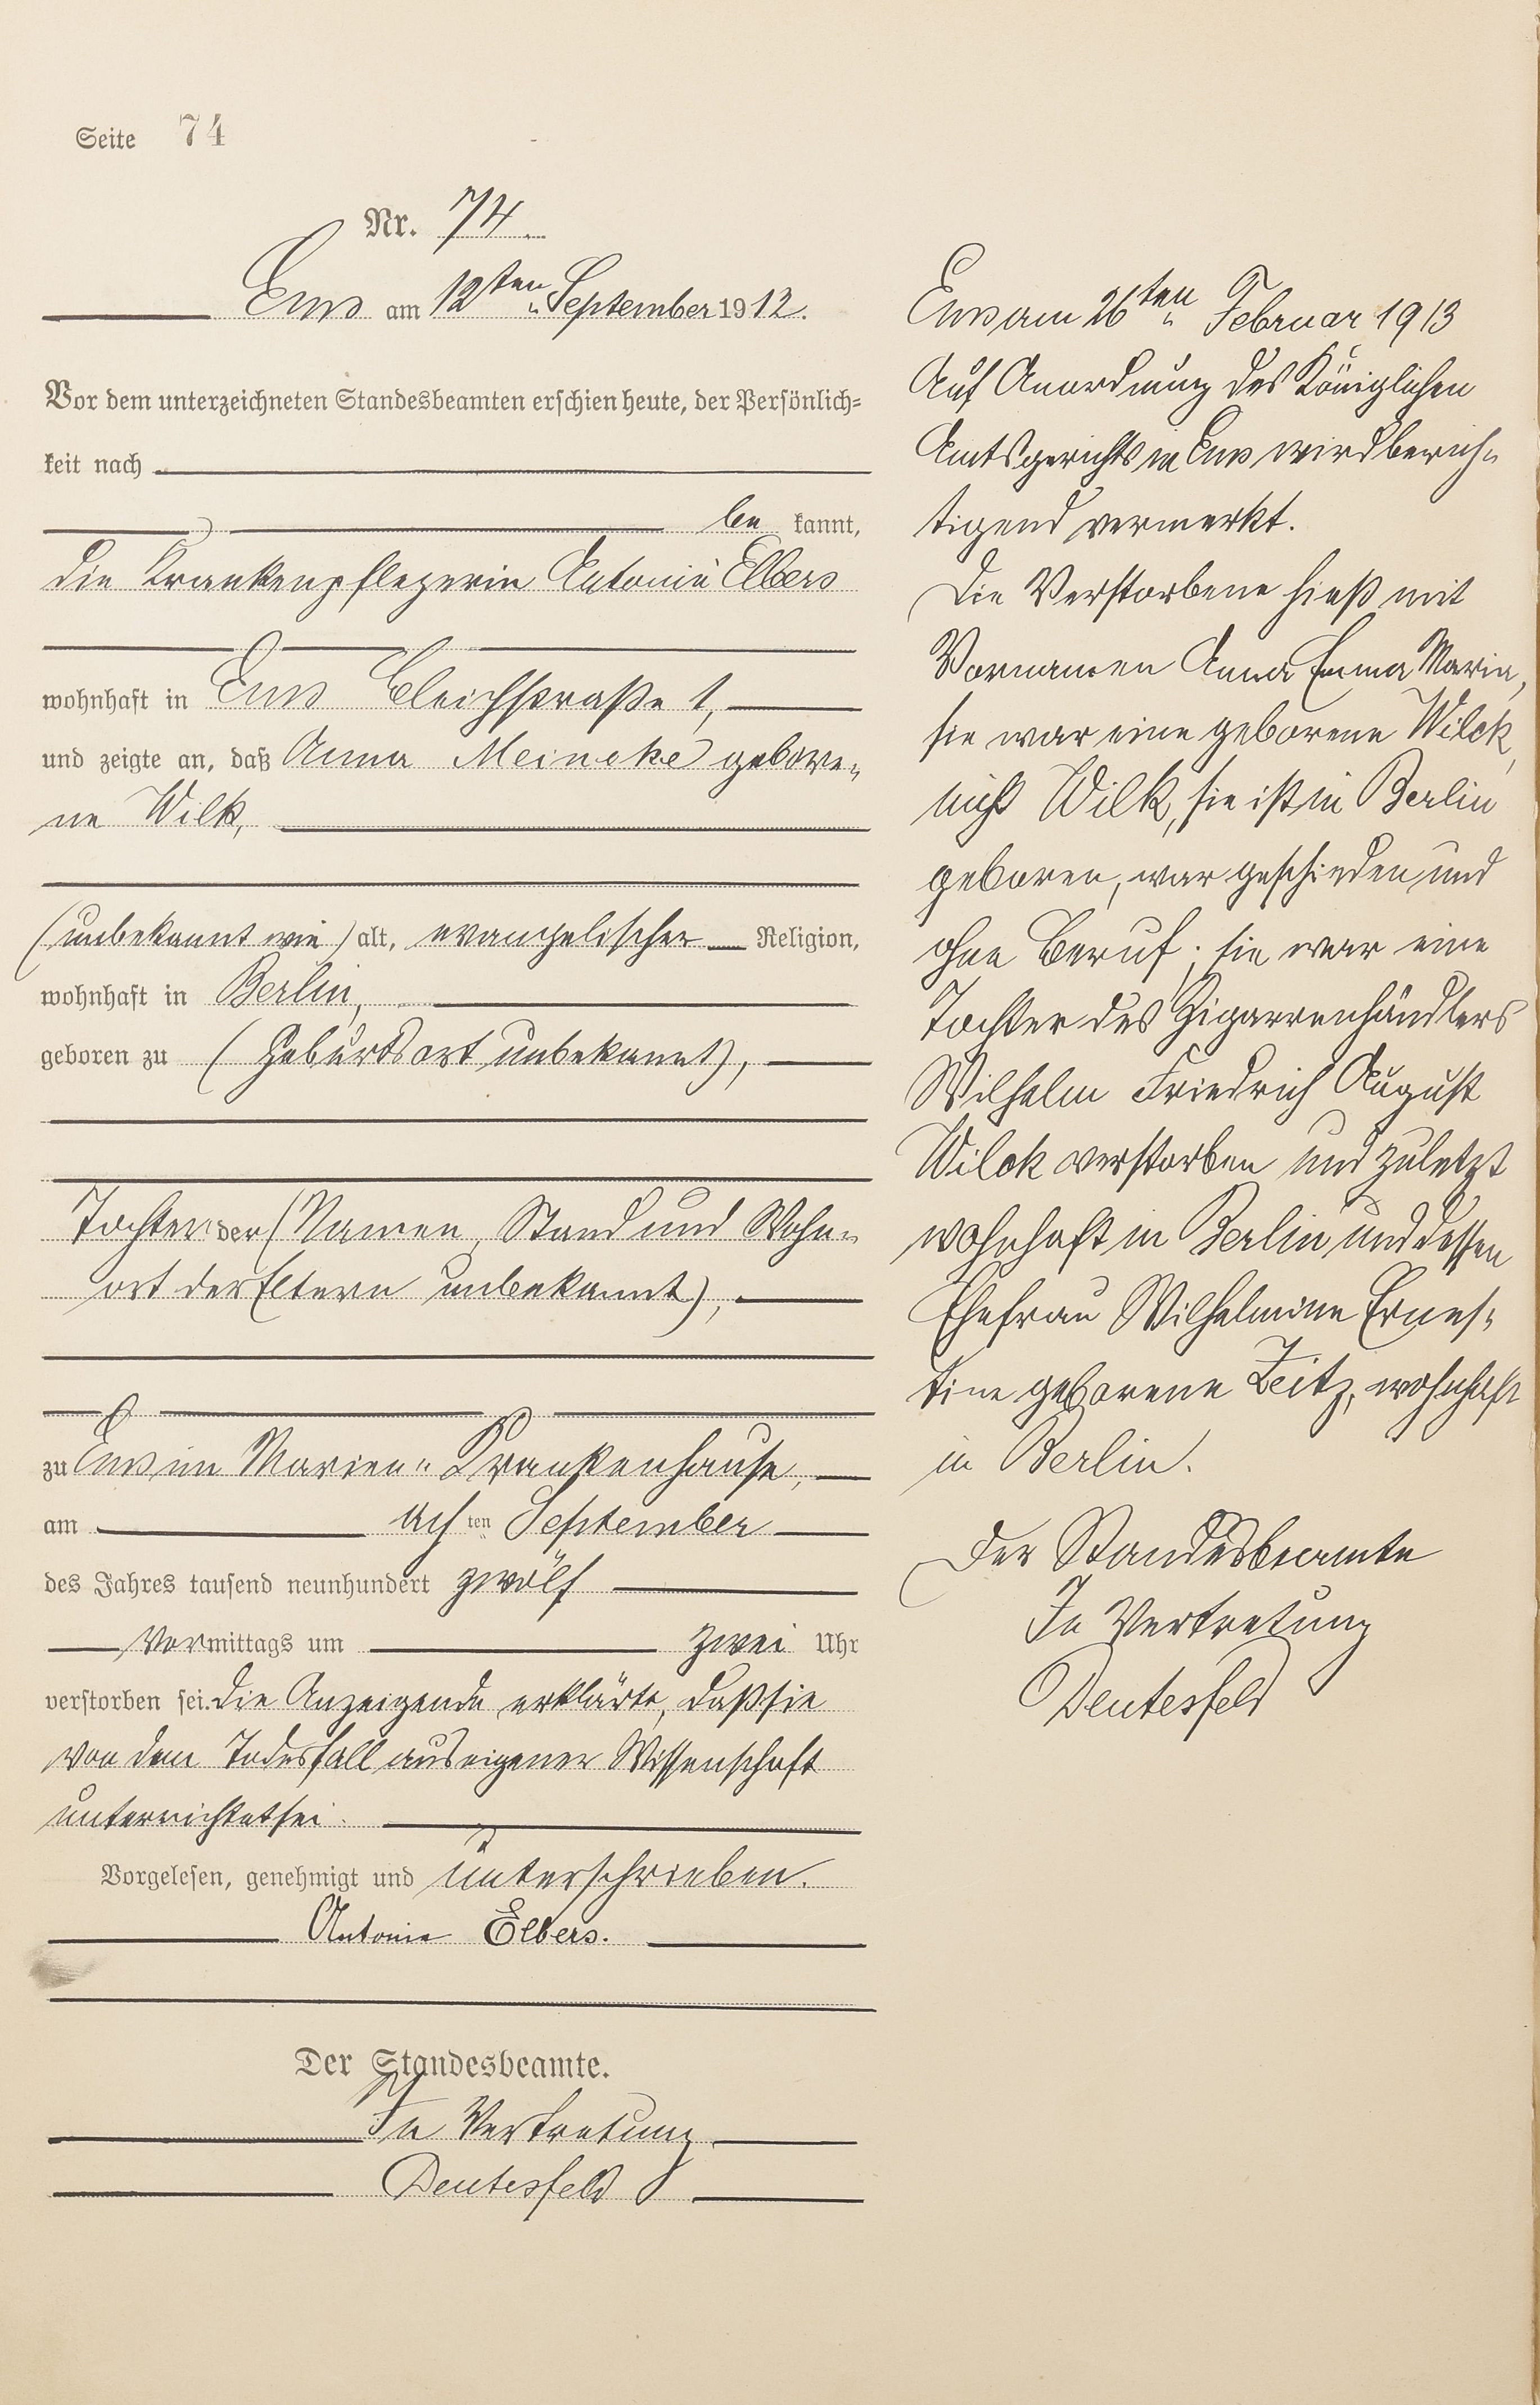 Seite 74
Nr. 74.
Ems am 12ten September 1912.
Vor dem unterzeichneten Standesbeamten erschien heute, der Persönlich-
keit nach
be kannt,
die Krankenpflegerin Antonie Elbers
wohnhaft in Ems Bleichstraße 1,
und zeigte an, daß Anna Meincke gebore-
ne Wilk,
(unbekannt wie) alt, evangelischer Religion,
wohnhaft in Berlin,
geboren zu (Geburtsort unbekannt),
Tochter der (Namen, Stand und Wohn-
ort der Eltern unbekannt),
zu Ems im Marien-Krankenhause,
am achten September
des Jahres tausend neunhundert zwölf
Vormittags um zwei Uhr
verstorben sei. Die Anzeigende erklärte, daß sie
von dem Todesfall aus eigener Wissenschaft
unterrichtet sei.
Vorgelesen, genehmigt und unterschrieben.
Antonie Elbers.
Der Standesbeamte.
In Vertretung
Deutesfeld
Ems am 26ten Februar 1913
Auf Anordnung des Königlichen
Amtsgerichts in Ems wird berich-
tigend vermerkt.
Die Verstorbene hieß mit
Vornamen Anna Emma Maria,
sie war eine geborene Wilck,
nicht Wilk, sie ist in Berlin
geboren, war geschieden und
ohne Beruf; sie war eine
Tochter des Zigarrenhändlers
Wilhelm Friedrich August
Wilck verstorben und zuletzt
wohnhaft in Berlin und dessen
Ehefrau Wilhelmine Ernes-
tine geborene Zeitz, wohnhaft
in Berlin.
Der Standesbeamte
In Vertretung
Deutesfeld